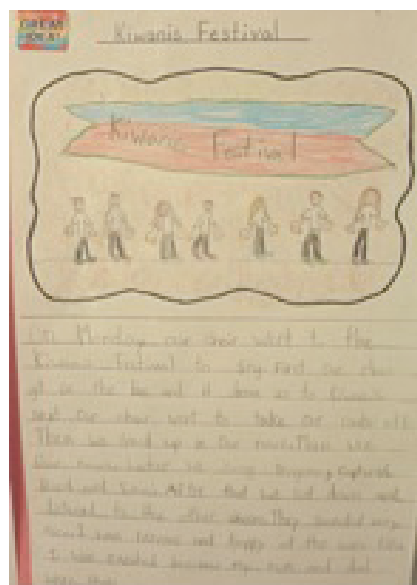 GREAT
IDEA!
Kiwanis Festival
Kiwanis Festival
On Monday our choir went to the
Kiwanis Festival to sing. First our choir
got on the bus and it drove us to Kiwanis
next our choir went to take our coats off.
Then we lined up in our rows. Then we
After that we sat down and
listened to the other choirs. They sounded very
nervous and happy at the same time
I was because my mom and dad
were there